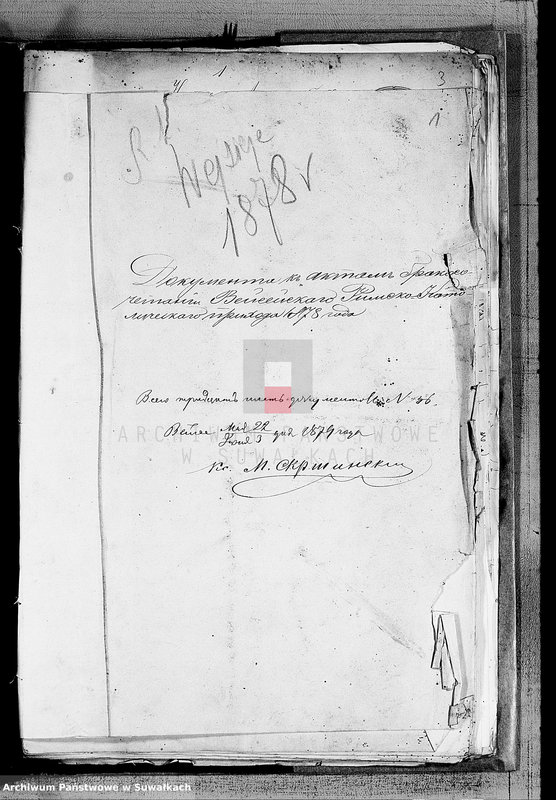 1
3
1
R. K.
Wejsieje
1878 r
Документа къ актамъ брако-
четаній Вейсейскаго Римско-Като
лическаго прихода 1878 года
Всего тридцать шесть документовъ № 36
Вейсее Мая 22 / Іюня 3 дня 1879 года
Кс. М. Скршински
ARCHIWUM PAŃSTWOWE
W SUWAŁKACH
Archiwum Państwowe w Suwałkach